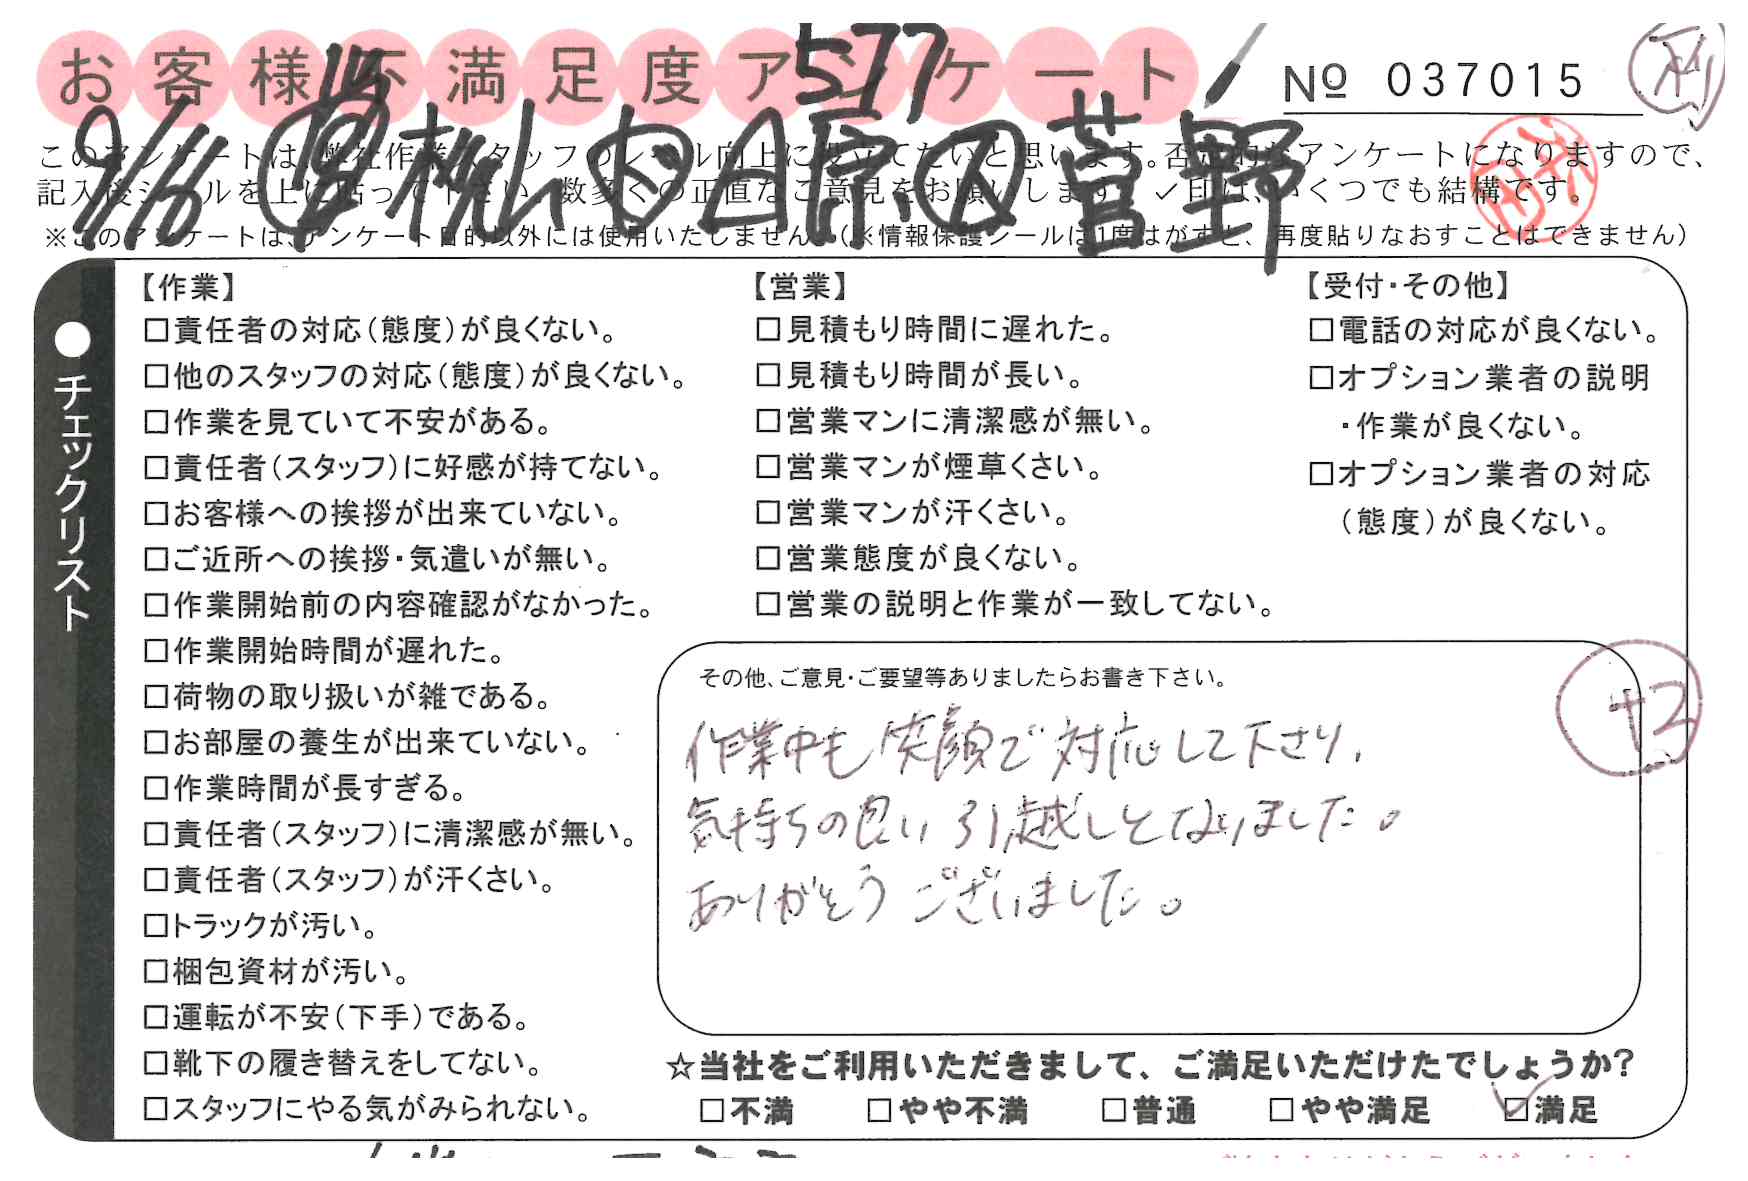 お客様不満足度アンケート
577
№ 037015
菅野
このアンケートは、弊社作業スタッフのレベル向上に役立てたいと思います。否定的なアンケートになりますので、
記入後シールを上に貼って下さい。数多くの正直なご意見をお願いします。✓印は、いくつでも結構です。
※このアンケートは、アンケート目的以外には使用いたしません。(※情報保護シールは1度はがすと、再度貼りなおすことはできません)
●チェックリスト
【作業】
□責任者の対応(態度)が良くない。
□他のスタッフの対応(態度)が良くない。
□作業を見ていて不安がある。
□責任者(スタッフ)に好感が持てない。
□お客様への挨拶が出来ていない。
□ご近所への挨拶・気遣いが無い。
□作業開始前の内容確認がなかった。
□作業開始時間が遅れた。
□荷物の取り扱いが雑である。
□お部屋の養生が出来ていない。
□作業時間が長すぎる。
□責任者(スタッフ)に清潔感が無い。
□責任者(スタッフ)が汗くさい。
□トラックが汚い。
□梱包資材が汚い。
□運転が不安(下手)である。
□靴下の履き替えをしてない。
□スタッフにやる気がみられない。
【営業】
□見積もり時間に遅れた。
□見積もり時間が長い。
□営業マンに清潔感が無い。
□営業マンが煙草くさい。
□営業マンが汗くさい。
□営業態度が良くない。
□営業の説明と作業が一致してない。
【受付・その他】
□電話の対応が良くない。
□オプション業者の説明
・作業が良くない。
□オプション業者の対応
(態度)が良くない。
その他、ご意見・ご要望等ありましたらお書き下さい。
作業中も笑顔で対応して下さり、
気持ちの良い引越しとなりました。
ありがとうございました。
+3
☆当社をご利用いただきまして、ご満足いただけたでしょうか?
□不満 □やや不満 □普通 □やや満足 ☑満足